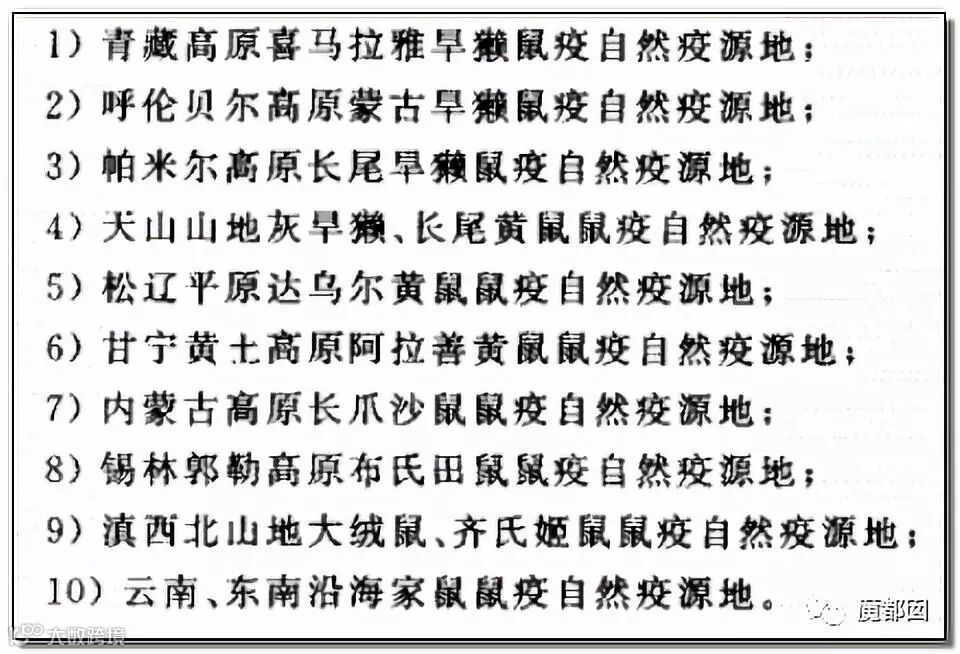 1）青藏高原喜马拉雅旱獭鼠疫自然疫源地；
2）呼伦贝尔高原蒙古旱獭鼠疫自然疫源地；
3）帕米尔高原长尾旱獭鼠疫自然疫源地；
4）天山山地灰旱獭、长尾黄鼠鼠疫自然疫源地；
5）松辽平原达乌尔黄鼠鼠疫自然疫源地；
6）甘宁黄土高原阿拉善黄鼠鼠疫自然疫源地；
7）内蒙古高原长爪沙鼠鼠疫自然疫源地；
8）锡林郭勒高原布氏田鼠鼠疫自然疫源地；
9）滇西北山地大绒鼠、齐氏姬鼠鼠疫自然疫源地；
10）云南、东南沿海家鼠鼠疫自然疫源地。
大数跨境